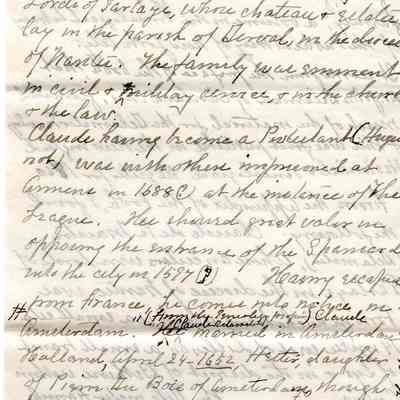 Lords of Parlaye, whose chateau & estates
lay in the parish of Derval, in the diocese
of Nantes. The family was eminent
in civil & military service, & in the church
& the law.
Claude having become a Protestant (Hugue
not) was with others imprisoned at
Amiens in 1588(?) at the instance of the
League. He showed great valor in
opposing the entrance of the Spaniard
into the city in 1597(?) Having escaped
from France, he comes into notice in
# Amsterdam.
"(formerly Bourlez pr of) Claude
married in Amsterdam
Holland, April 24 - 1652 Hester, daughter
of Pierre Du Bois of Amsterdam, though